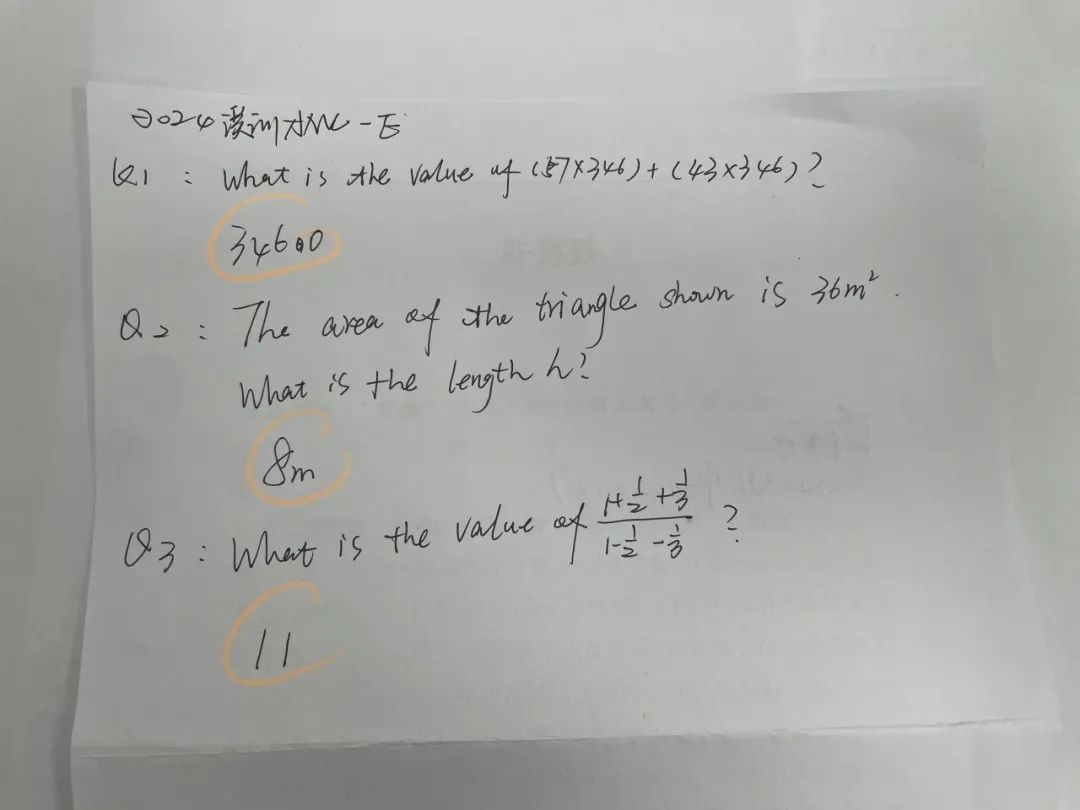 2024澳洲AMC-E
Q1 : What is the value of (57×346)+(43×346)?
34600
Q2 : The area of the triangle shown is 36m².
What is the length h?
8m
Q3 : What is the value of \frac{1+\frac{1}{2}+\frac{1}{3}}{1-\frac{1}{2}-\frac{1}{3}} ?
11